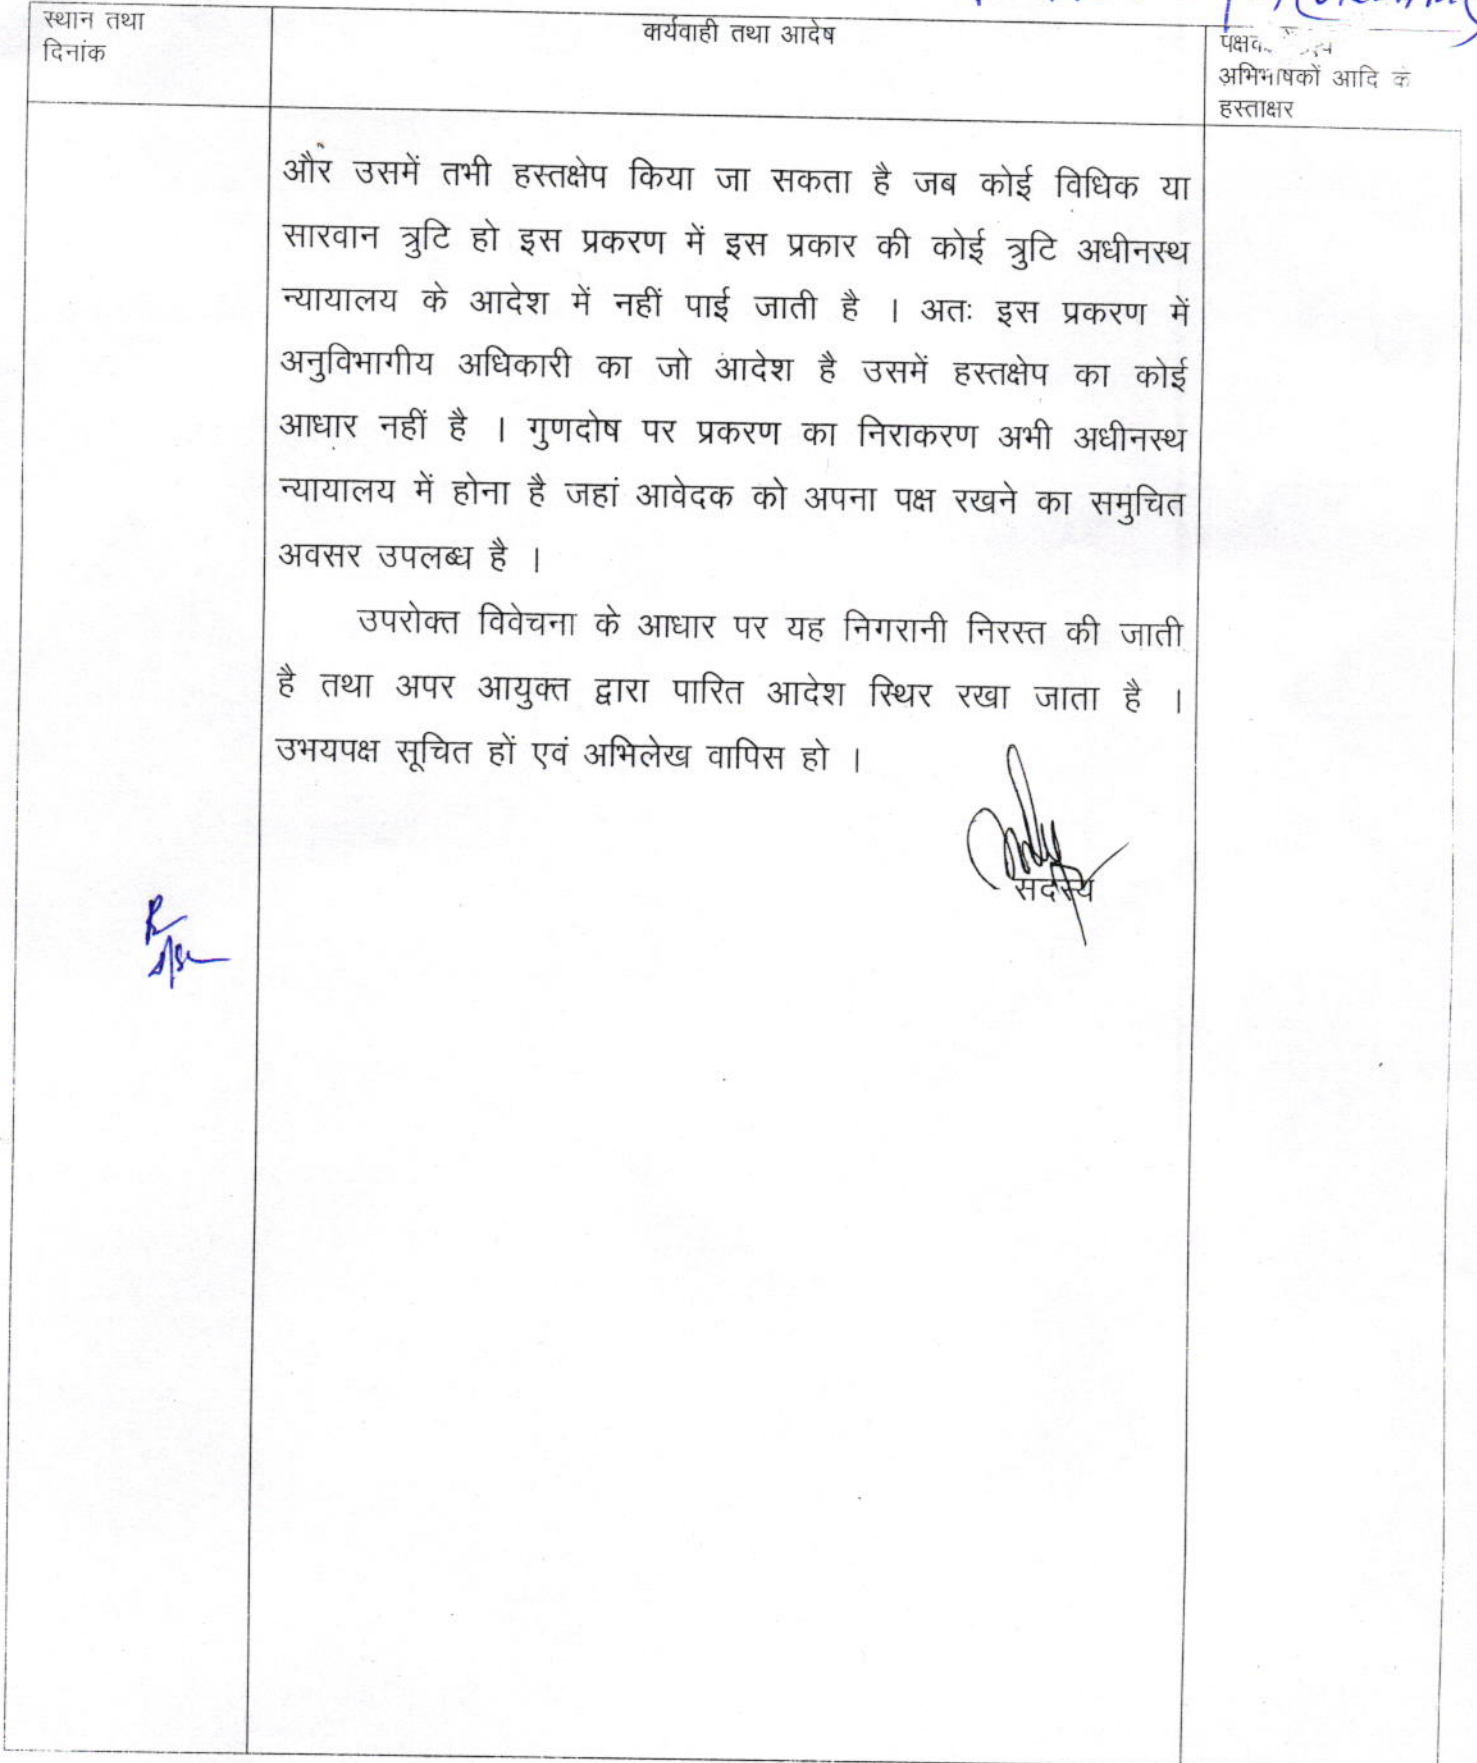 स्थान तथा
दिनांक
कार्यवाही तथा आदेष
अभिभाषकों आदि के
हस्ताक्षर
और उसमें तभी हस्तक्षेप किया जा सकता है जब कोई विधिक या
सारवान त्रुटि हो इस प्रकरण में इस प्रकार की कोई त्रुटि अधीनस्थ
न्यायालय के आदेश में नहीं पाई जाती है । अतः इस प्रकरण में
अनुविभागीय अधिकारी का जो आदेश है उसमें हस्तक्षेप का कोई
आधार नहीं है । गुणदोष पर प्रकरण का निराकरण अभी अधीनस्थ
न्यायालय में होना है जहां आवेदक को अपना पक्ष रखने का समुचित
अवसर उपलब्ध है ।
उपरोक्त विवेचना के आधार पर यह निगरानी निरस्त की जाती
है तथा अपर आयुक्त द्वारा पारित आदेश स्थिर रखा जाता है ।
उभयपक्ष सूचित हों एवं अभिलेख वापिस हो ।
सदस्य